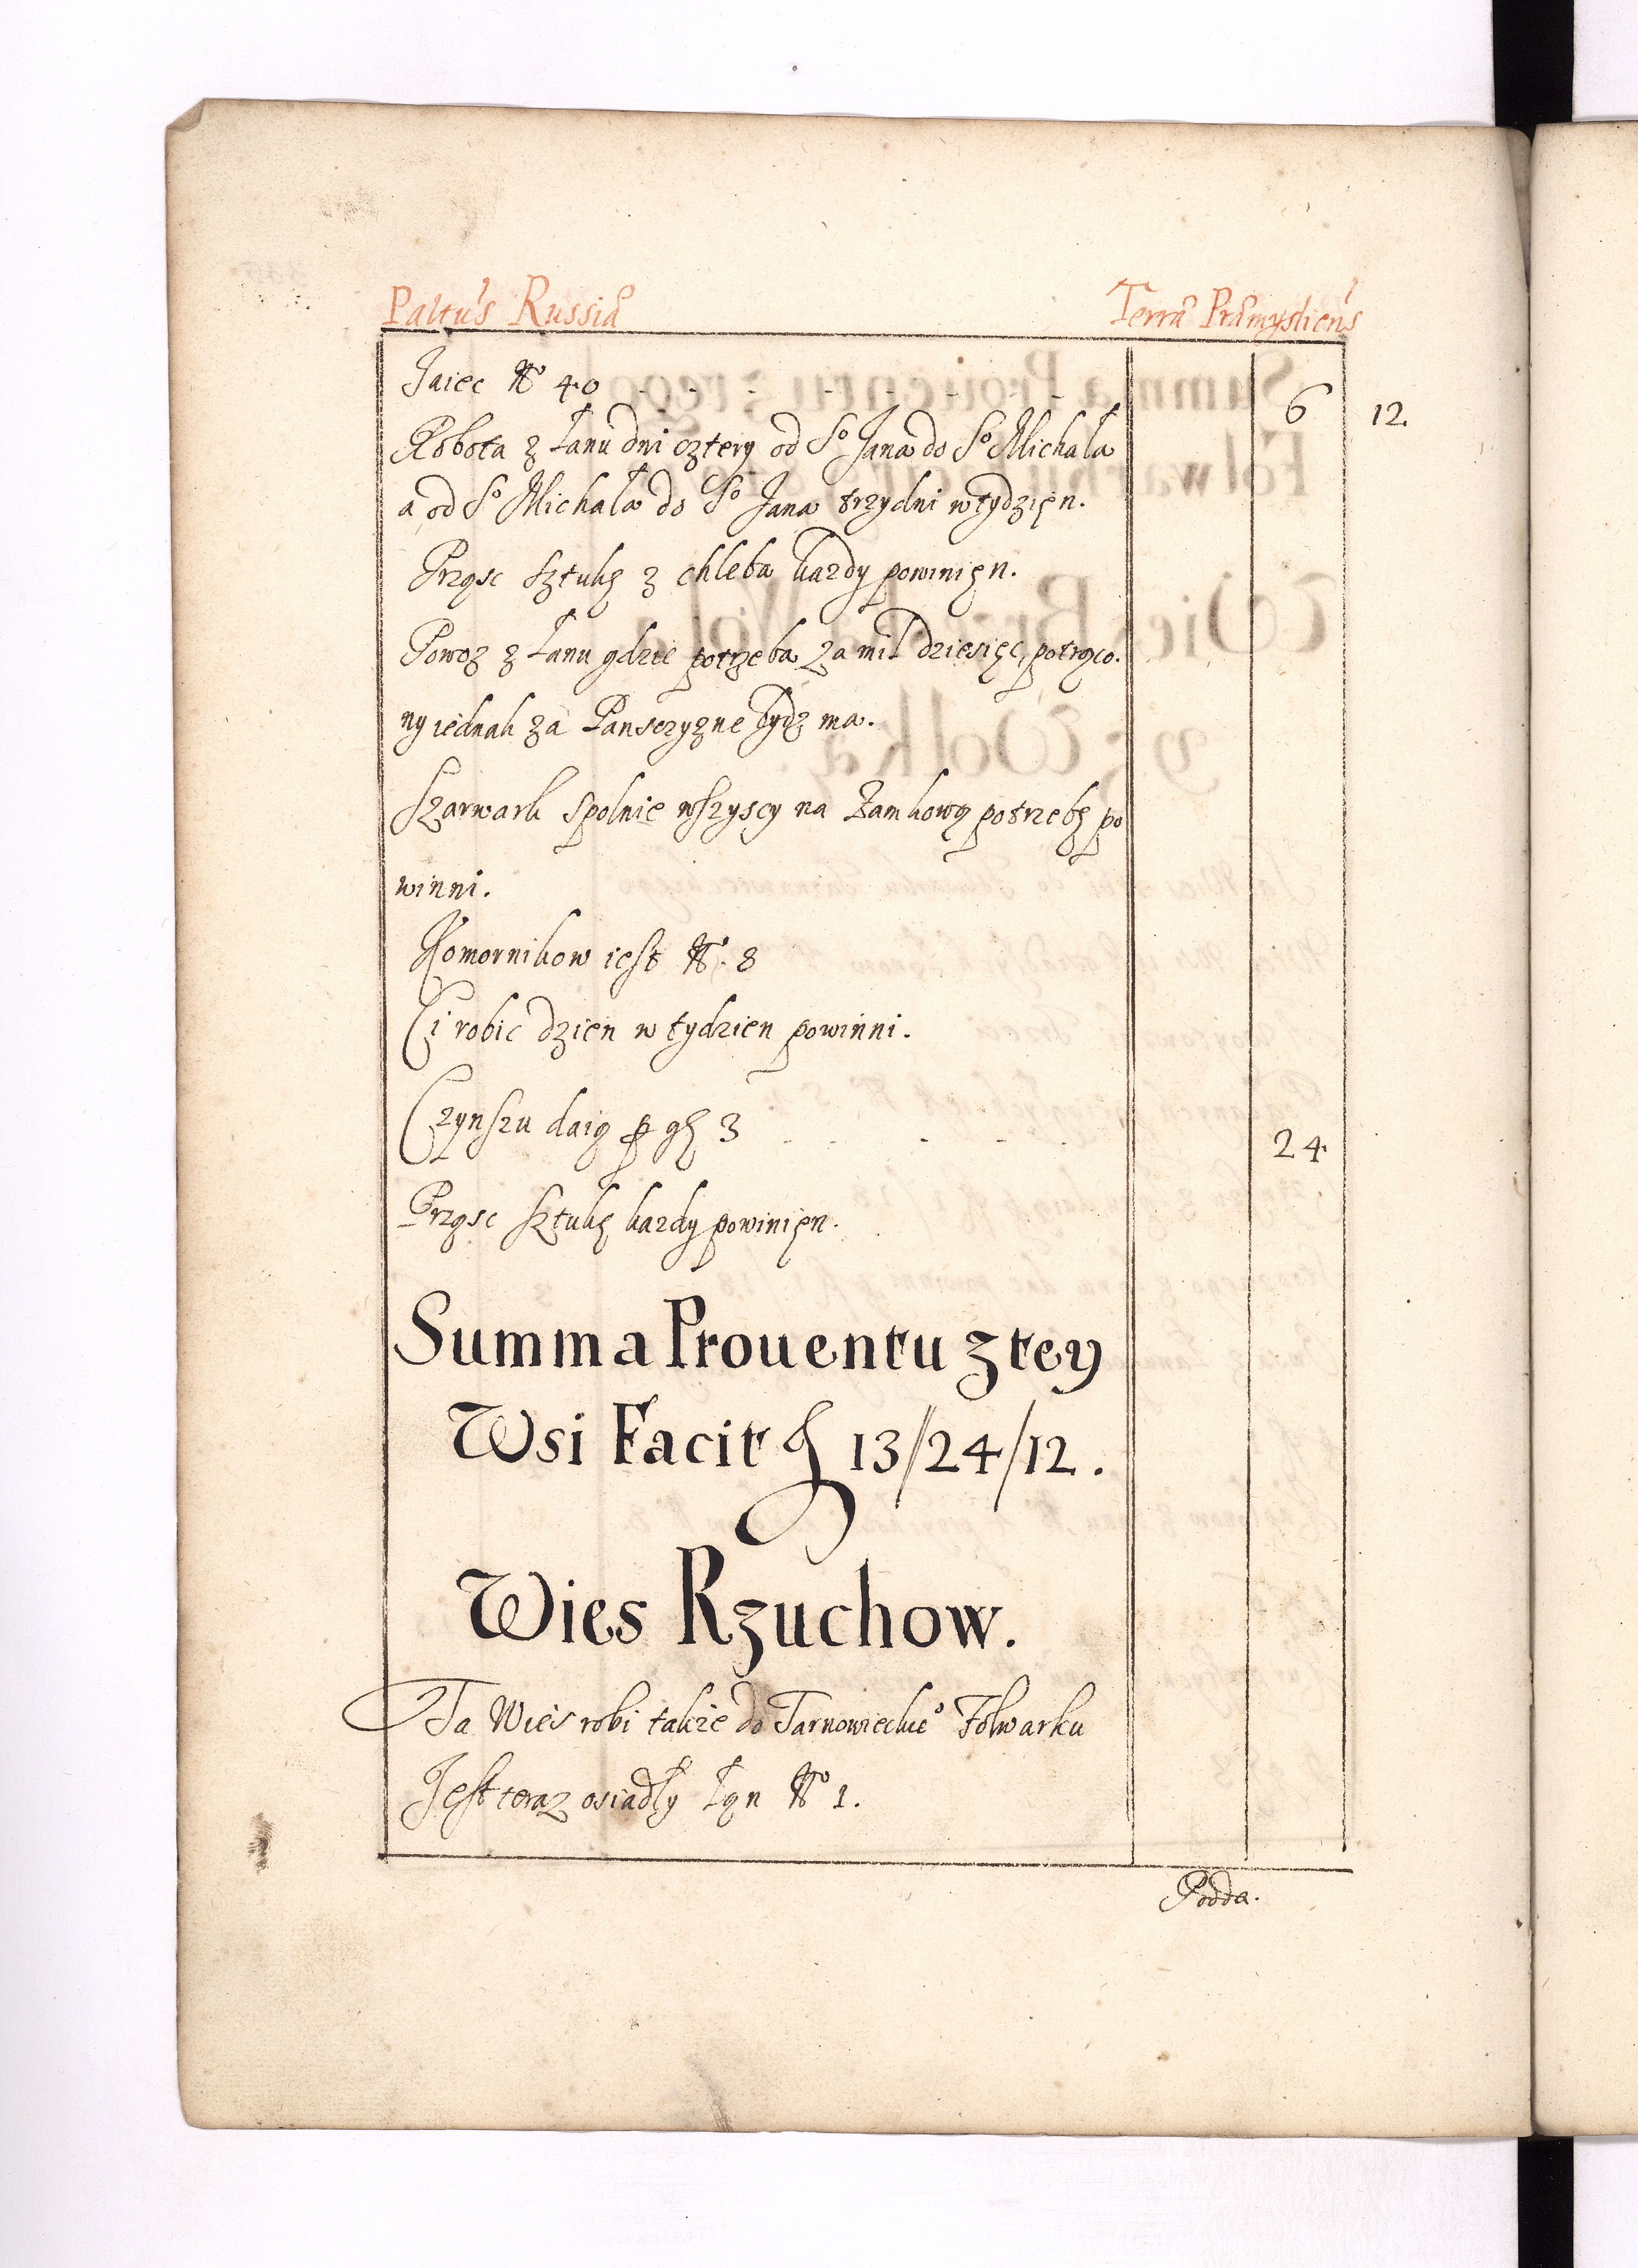 Paltus Russiæ Terræ Præmysliens
Jaiec No 40 - - - - - - - - 6 12.
Robota z Łanu dni cztery od So Jana do So Michała
a od So Michała do So Jana trzy dni w tydzięn.
Prząsc sztukę z chleba kazdy powinięn.
Powoz z Łanu gdzie potrzeba za mil dziesięc, potrąco.
ny iednak za Panszczyzne bydz ma.
Szarwark spolnie wszyscy na Zamkową potrzebę po
winni.
Komornikow iest No. 8
Ci robic dzien w tydzien powinni.
Czynszu daią p gs 3 - - - - - 24
Prząsc sztukę kazdy powinięn.
Summa Prouentu z tey
Wsi Facit f 13/24/12.
Wies Rzuchow.
Ta Wies robi także do Tarnowieckieo Folwarku
Jest teraz osiadły Łąn No 1.
Podda.